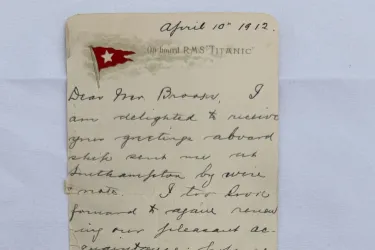 April 10th 1912.
On board R.M.S. "TITANIC"
Dear Mrs Brooks, I
am delighted to receive
your greetings aboard
ship sent me at
Southampton by wire
& note. I too look
forward to again renew
ing our pleasant ac-